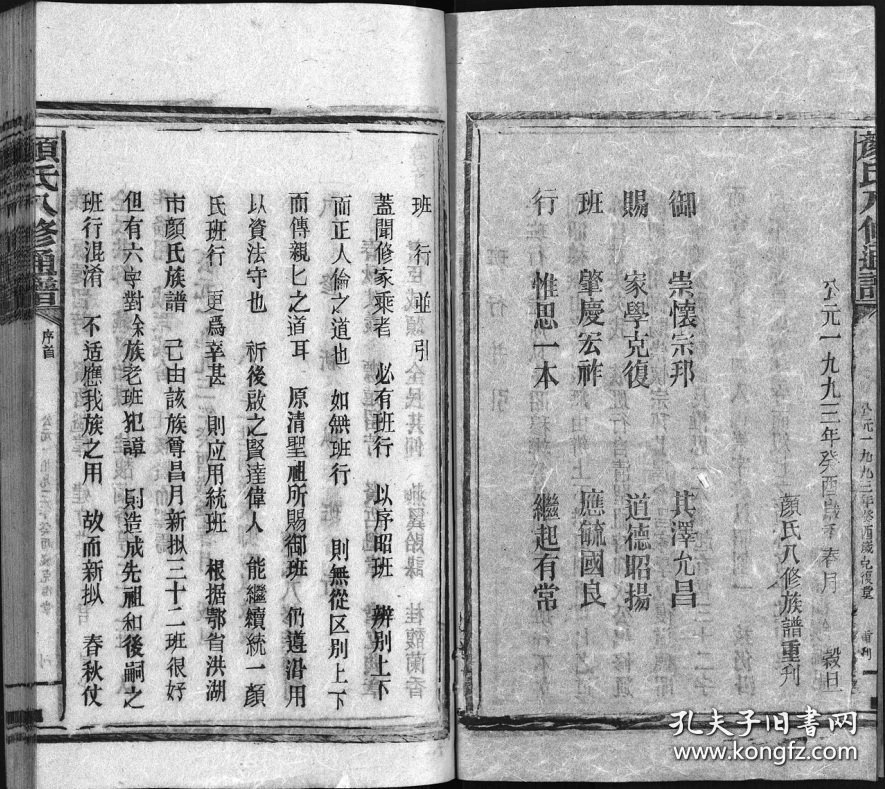 顏氏八修通譜
公元一九九三年癸酉歲克復堂 重刊
公元一九九三年癸酉歲 春月 穀旦
顏氏八修族譜重刊
御 崇懷宗邦 其澤允昌
賜 家學克復 道德昭揚
班 肇慶宏祚 應毓國良
行 惟思一本 繼起有常
班行並引
蓋聞修家乘者 必有班行 以序昭班 辨别上下
而正人倫之道也 如無班行 則無從区别上下
而傳親匕之道耳 原清聖祖所賜御班 仍遵沿用
以資法守也 祈後啟之賢達偉人 能繼續統一顏
氏班行 更爲幸甚 則应用統班 根据鄂省洪湖
市顏氏族譜 已由該族尊昌月新拟三十二班很好
但有六字對余族老班犯諱 則造成先祖和後嗣之
班行混淆 不适應我族之用 故而新拟 春秋仗
顏氏八修通譜
序首
孔夫子旧书网
www.kongfz.com